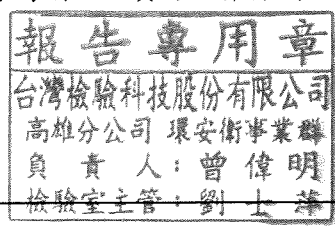 報告專用章
台灣檢驗科技股份有限公司
高雄分公司 環安衛事業群
負責人：曾偉明
檢驗室主管：劉士